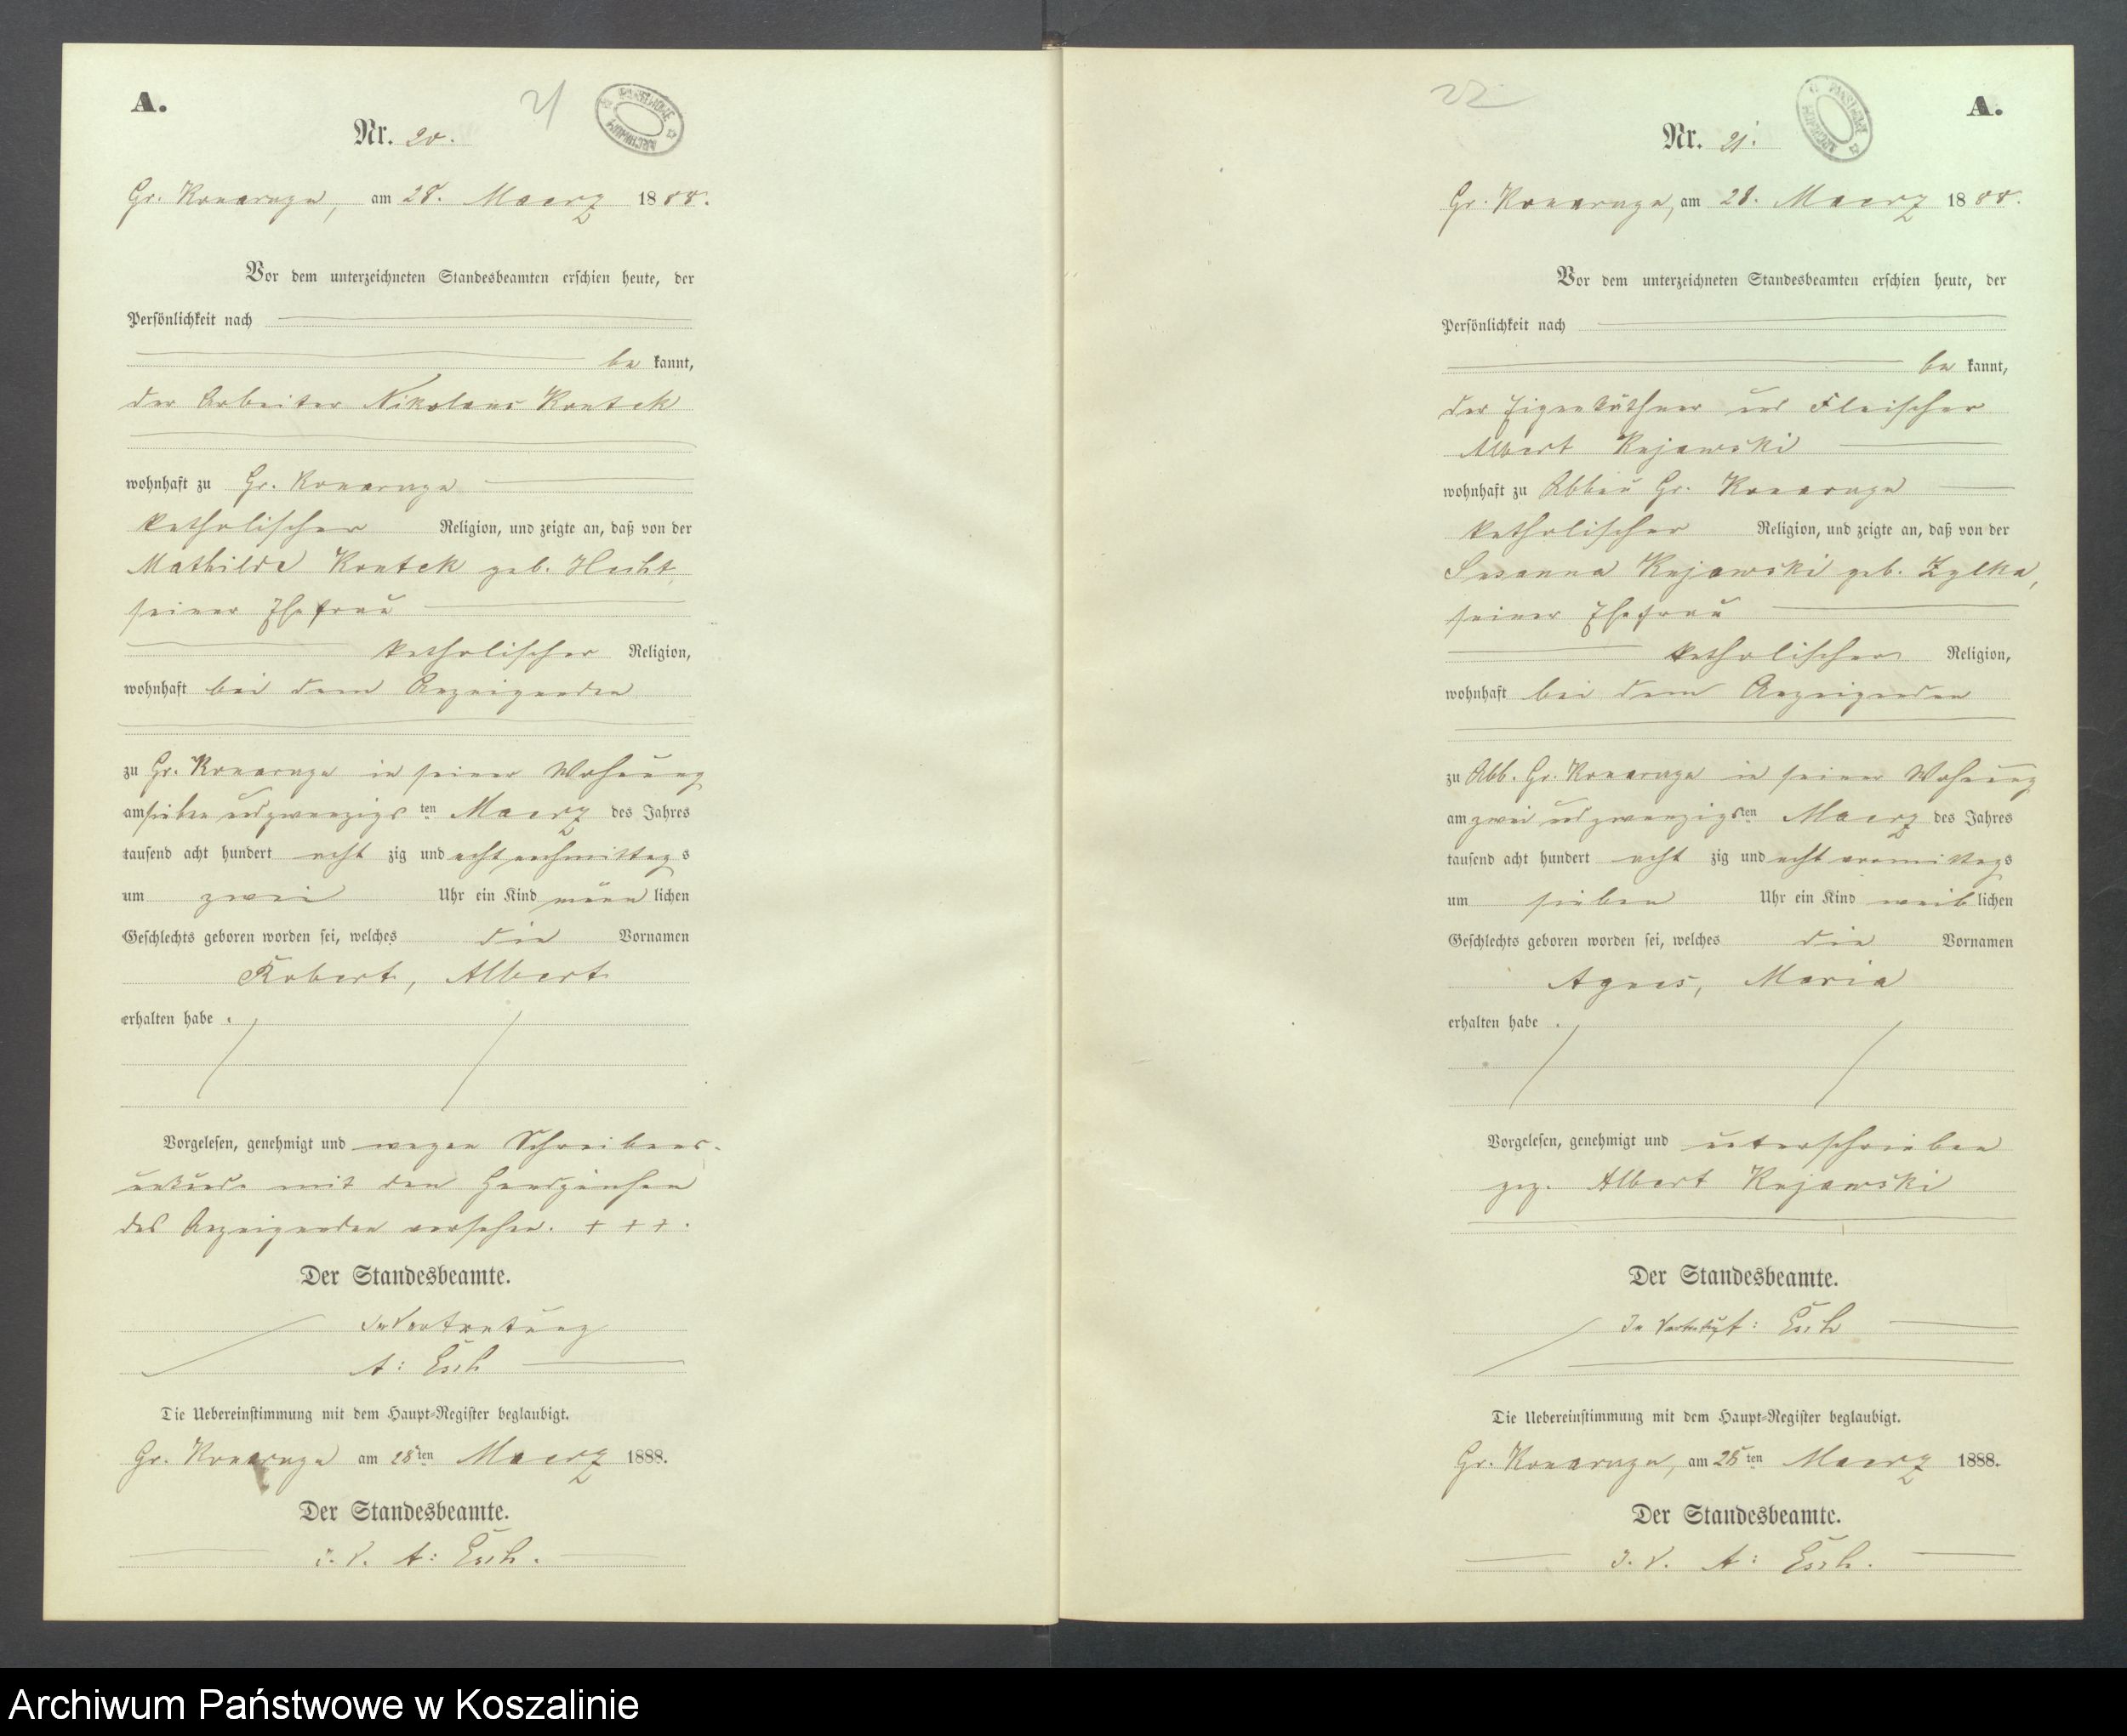 A.
21
Nr. 20.
Gr. Konarczyn, am 28. Maerz 1888.
Vor dem unterzeichneten Standesbeamten erschien heute, der
Persönlichkeit nach
be kannt,
der Arbeiter Nikolaus Kontek
wohnhaft zu Gr. Konarczyn
katholischer Religion, und zeigte an, daß von der
Mathilde Kontek geb. Hecht,
seiner Ehefrau
katholischer Religion,
wohnhaft bei dem Anzeigenden
zu Gr. Konarczyn in seiner Wohnung
am sieben und zwanzigsten Maerz des Jahres
tausend acht hundert acht zig und acht nachmittags
um zwei Uhr ein Kind männ lichen
Geschlechts geboren worden sei, welches die Vornamen
Robert, Albert
erhalten habe.
Vorgelesen, genehmigt und wegen Schreibens-
unkunde mit den Handzeichen
des Anzeigenden versehen. + + + .
Der Standesbeamte.
In Vertretung
A: Esch
Die Uebereinstimmung mit dem Haupt-Register beglaubigt.
Gr. Konarczyn am 28ten Maerz 1888.
Der Standesbeamte.
i. V. A: Esch.
22
A.
Nr. 21.
Gr. Konarczyn, am 28. Maerz 1888.
Vor dem unterzeichneten Standesbeamten erschien heute, der
Persönlichkeit nach
be kannt,
der Eigenkäthner und Fleischer
Albert Kujawski
wohnhaft zu Abbau Gr. Konarczyn
katholischer Religion, und zeigte an, daß von der
Susanna Kujawski geb. Zylka,
seiner Ehefrau
katholischer Religion,
wohnhaft bei dem Anzeigenden
zu Abb. Gr. Konarczyn in seiner Wohnung
am zwei und zwanzigsten Maerz des Jahres
tausend acht hundert acht zig und acht vormittags
um sieben Uhr ein Kind weib lichen
Geschlechts geboren worden sei, welches die Vornamen
Agnes, Maria
erhalten habe.
Vorgelesen, genehmigt und unterschrieben
gez. Albert Kujawski
Der Standesbeamte.
In Vertretung A: Esch
Die Uebereinstimmung mit dem Haupt-Register beglaubigt.
Gr. Konarczyn, am 28ten Maerz 1888.
Der Standesbeamte.
I. V. A: Esch.
Archiwum Państwowe w Koszalinie